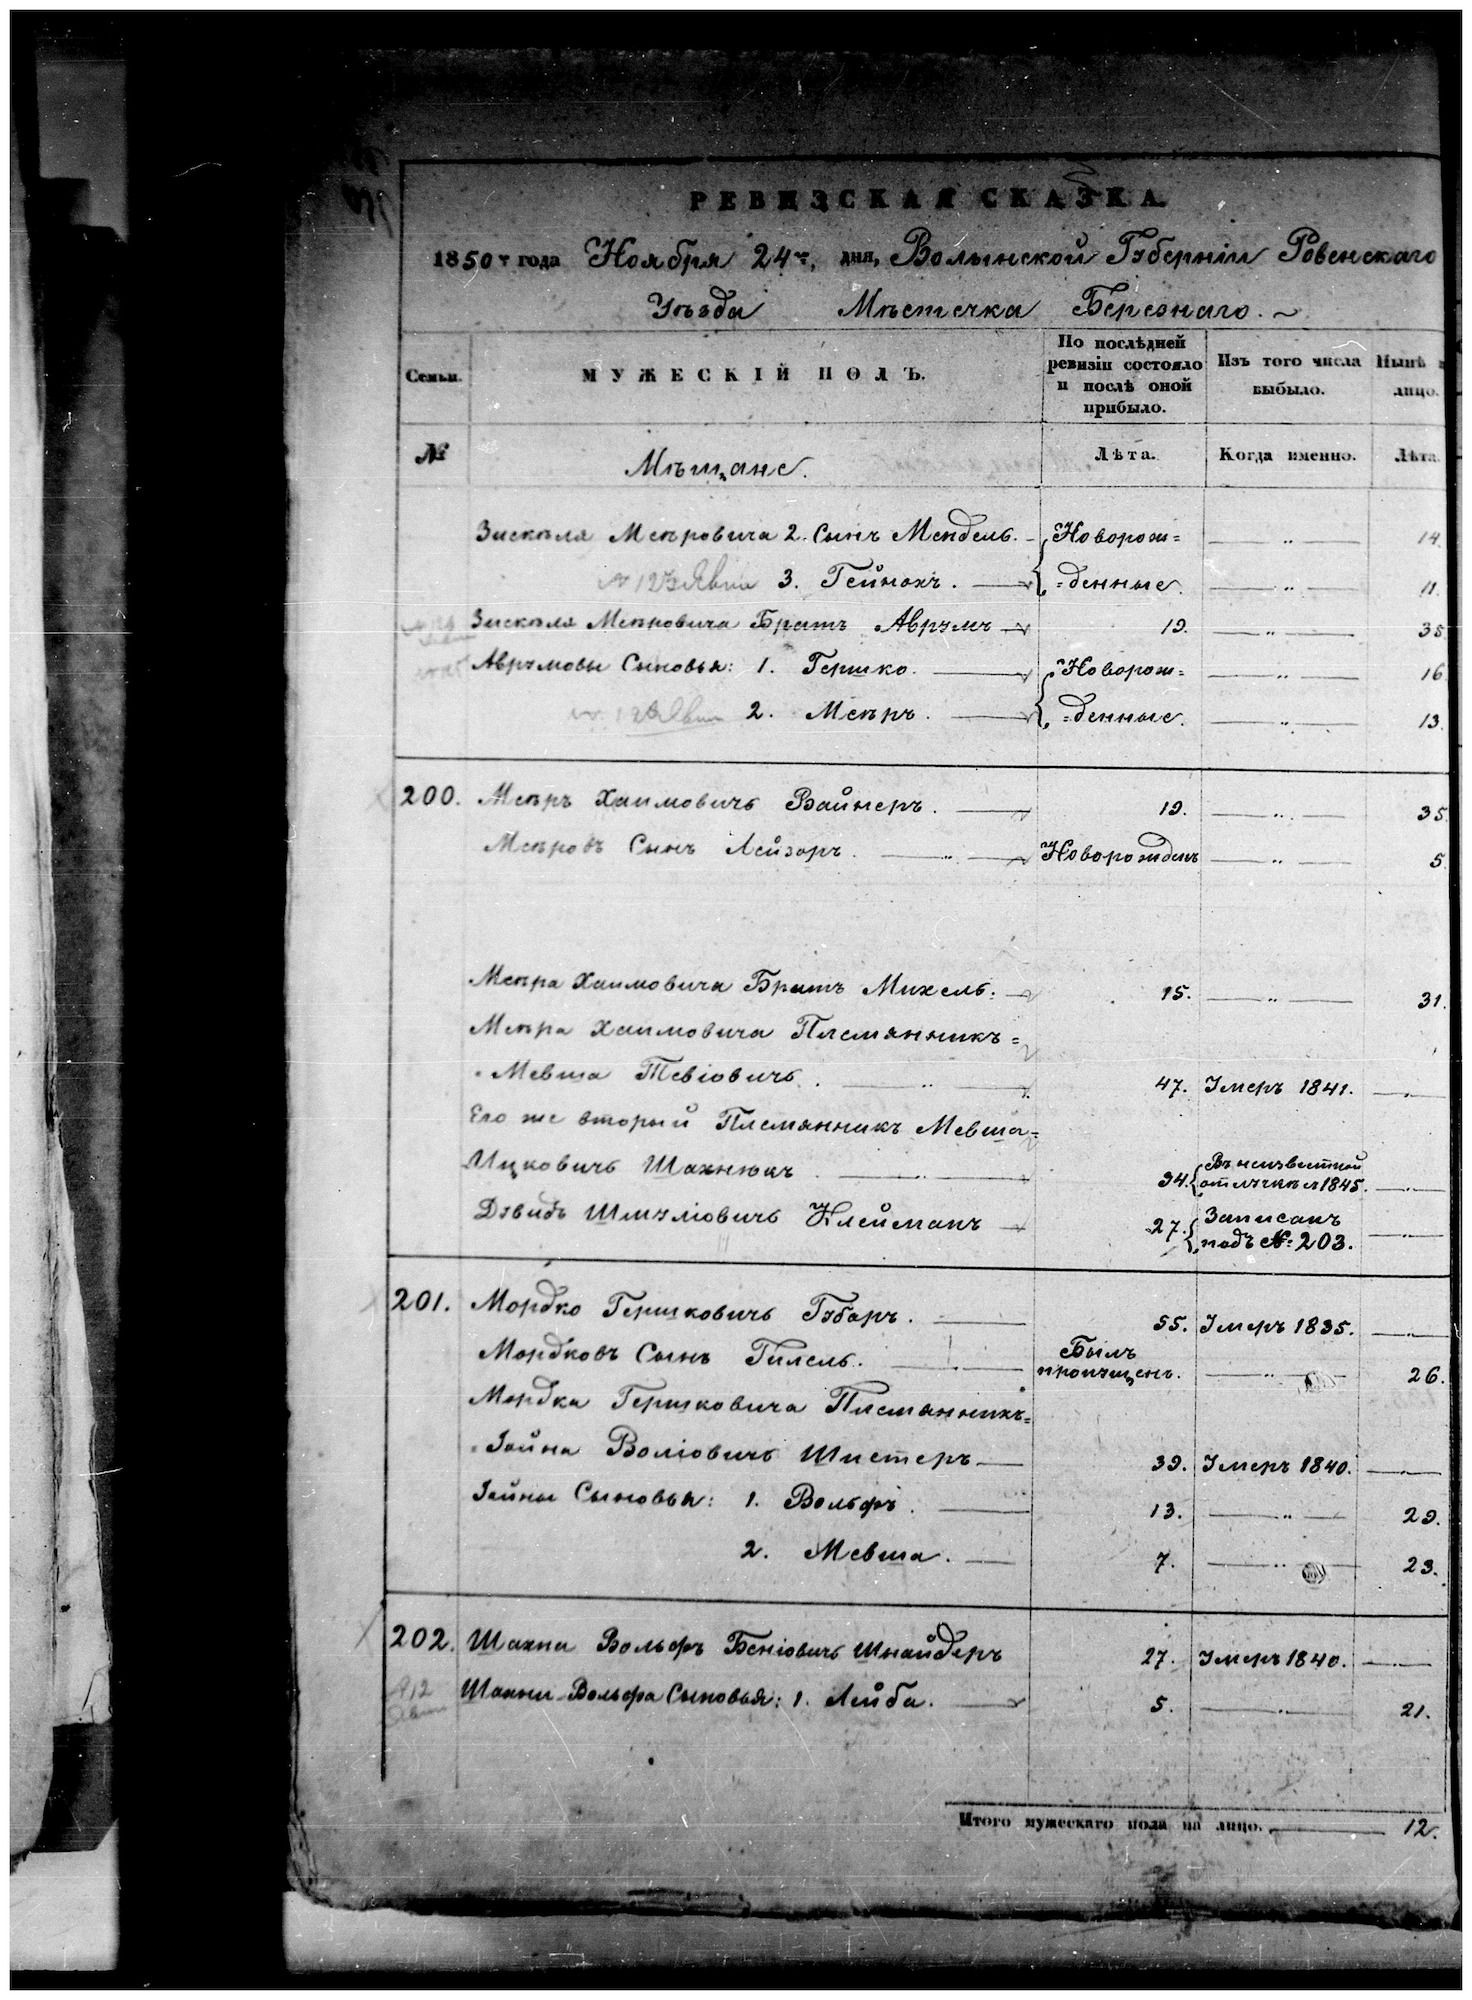 РЕВИЗСКАЯ СКАЗКА.
1850го года Ноября 24го дня, Волынской Губерніи Ровенскаго
Уѣзда Мѣстечка Березнаго.
Семьи. МУЖЕСКІЙ ПОЛЪ. По послѣдней ревизіи состояло и послѣ оной прибыло. Изъ того числа выбыло. Нынѣ лицо.
№ Мѣщане. Лѣта. Когда именно. Лѣта.
Зискеля Меѣровича 2. Сынъ Мендель. Новорож= 14.
3. Гейнохъ. =денные. 11.
Зискеля Меѣровича Братъ Аврумъ 19. 35
Аврумовы Сыновья: 1. Гершко. Новорож= 16
2. Меѣръ. =денные. 13.
200. Меѣръ Хаимовичъ Вайнеръ. 19. 35.
Меѣровъ Сынъ Лейзоръ. Новорожденъ 5.
Меѣра Хаимовича Братъ Михель. 15. 31.
Меѣра Хаимовича Племянникъ=
Мевша Тевіовичъ. 47. Умеръ 1841.
Его же вторый Племянникъ Мевша=
Ицковичъ Шахнюкъ. 34. Въ неизвестной отлучкѣ съ 1845.
Дувидъ Шмуліовичъ Клейманъ 27. Записанъ подъ №: 203.
201. Мордко Гершковичъ Губаръ. 55. Умеръ 1835.
Мордковъ Сынъ Гилель. Былъ пропущенъ. 26.
Мордка Гершковича Племянникъ=
Іойна Воліовичъ Шистеръ 39. Умеръ 1840.
Іойны Сыновья: 1. Вольфъ. 13. 29.
2. Мевша. 7. 23.
202. Шахна Вольфъ Беніовичъ Шнайдеръ 27. Умеръ 1840.
Шахны-Вольфа Сыновья: 1. Лейба. 5. 21.
Итого мужескаго пола на лицо. 12.